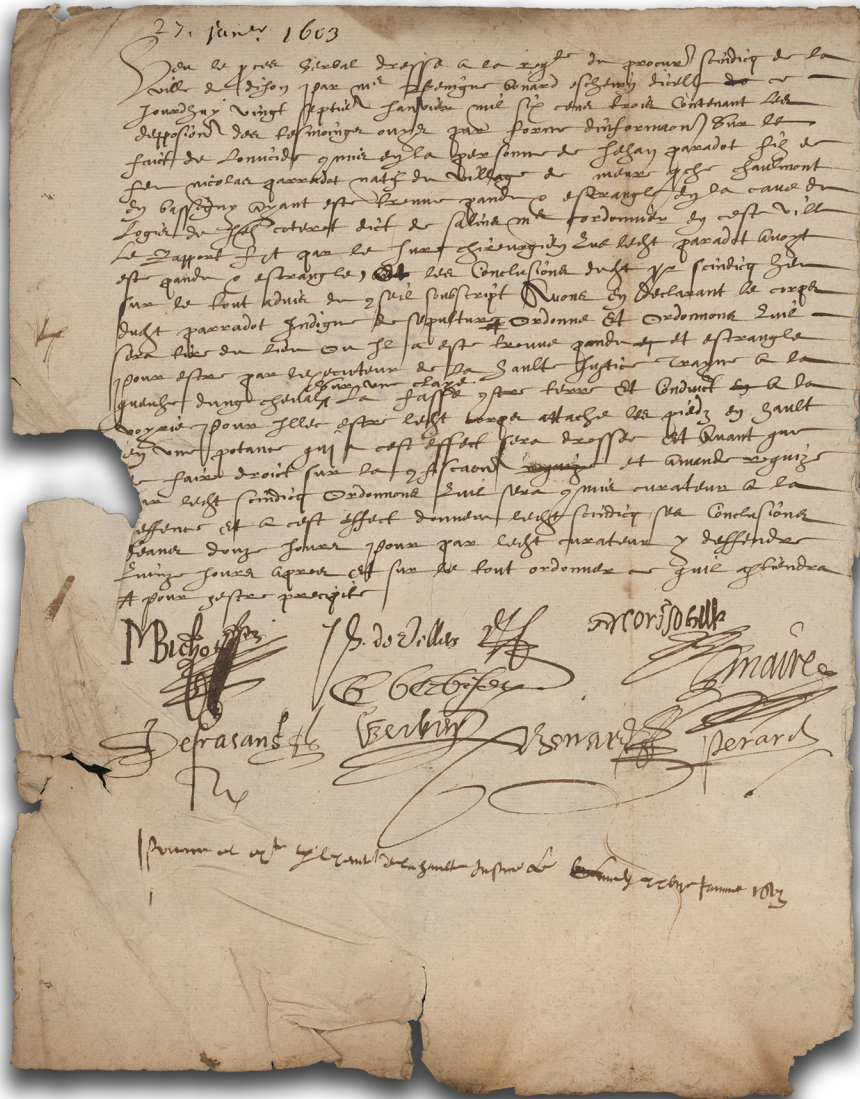 27. janer 1603
Veu le pces verbal dresse a la reqte du procur scindicq de la
ville de dijon par me Benigne bonard eschevin dicelle ce
Jourdhuy vingt septie Janvier mil six cens trois contenant les
depposions des tesmoings ouys par forme dinformaon Sur le
faict de lomicide cmis en la personne de Jehan paradot filz de
feu nicolas parradot natif du village de meure pche chaulmont
en bassigny ayant este treuve pandu & estrangle en la cave du
Logis de Jehan coteret dict de salins me cordonnier en ceste ville
Le Rapport fet par le Jure chirurgien que ledit paradot avoyt
este pandu & estrangle, les Conclusions dudit pr scindicq Bien
sur le tout advis du cseil soubscript Avons en declarant le corps
dudit parradot Indigne de sepulture Ordonne Et Ordonnons quil
sera tire du lieu ou Il a este treuve pandu et estrangle
pour estre par lexecuteur de la haulte Justice trayne a la
queuhe dung cheval sur une claye La fasse cstre terre Et Conduict a la
voyrie pour Illec estre ledit corps attache les piedz en hault
en une potance qui a cest effect sera dressee Et Avant que
faire droict sur la cfiscaon et amende requize
par ledit scindicq Ordonnons quil sera cmis curateur a la
deffence et a cest effect donnera ledit scindicq ses Conclusions
deans douze heures pour par ledit curateur y deffendre
quinze heures apres Et sur le tout ordonner ce quil apartiendra
# pour yestre precipite
M Bichot
J. de Villers
Morisot
E Berbisey
maire
Defrasans
Gerbin
Bonard
Perard
haulte Justice